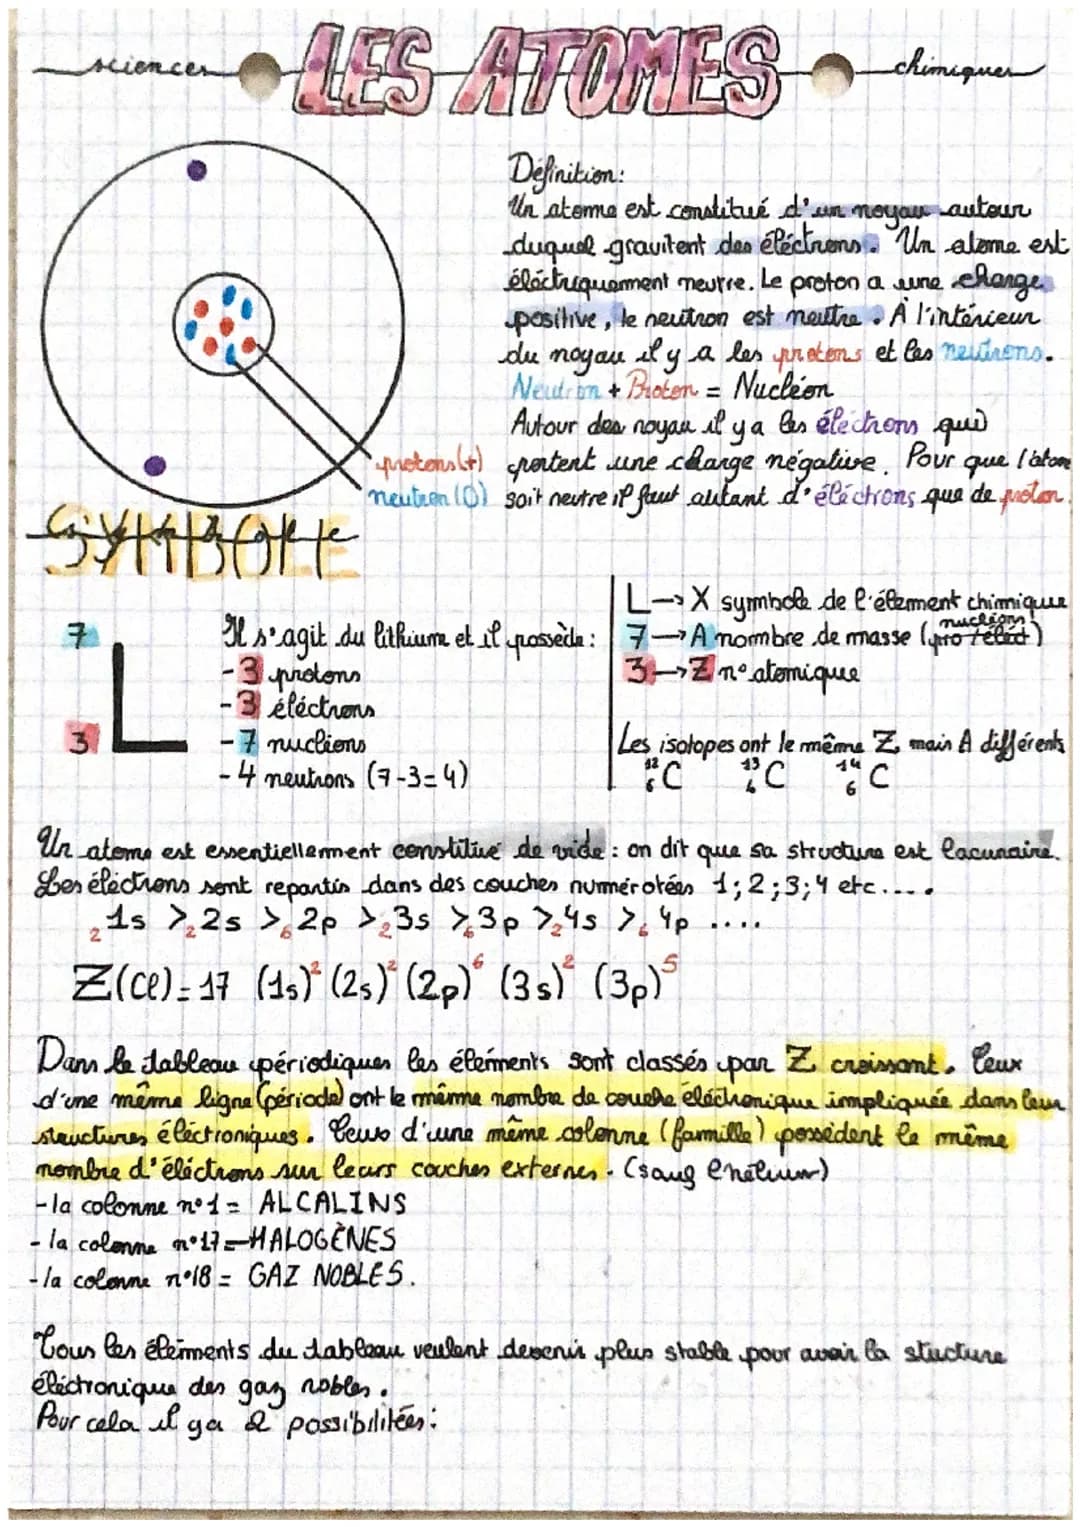 sciences LES ATOMES chimiques
Définition:
Un atome est constitué d'un noyau autour
duquel gravitent des éléctrons. Un atome est
éléctriquement neutre. Le proton a une charge
positive, le neutron est neutre. À l'intérieur
du noyau il y a les protons et les neutrons.
Neutron + Proton = Nucléon
Autour des noyau il y a les éléctrons qui
portent une charge négative. Pour que l'atom
soit neutre il faut autant d'éléctrons que de proton.
protons (+)
neutron (0)
SYMBOLE
7
3
L
Il s'agit du lithium et il possède:
-3 protons
-3 éléctrons
-7 nucléons
-4 neutrons (7-3=4)
L→X symbole de l'élément chimique
nucléons
7→A nombre de masse (pro+eléct)
3→Z n° atomique
Les isotopes ont le même Z, mais A différents
12 6 C 13 6 C 14 6 C
Un atome est essentiellement constitué de vide: on dit que sa structure est lacunaire.
Les éléctrons sont repartis dans des couches numérotées 1;2;3;4 etc....
2 1s > 2 2s > 6 2p > 2 3s > 6 3p > 2 4s > 6 4p ....
Z(Cl)=17 (1s)² (2s)² (2p)⁶ (3s)² (3p)⁵
Dans le tableau périodiques les éléments sont classés par Z croissant. Ceux
d'une même ligne (période) ont le même nombre de couche éléctronique impliquée dans leur
structures éléctroniques. Ceux d'une même colonne (famille) possèdent le même
nombre d'éléctrons sur leurs couches externes. (sauf l'hélium)
-la colonne n°1 = ALCALINS
-la colonne n°17 = HALOGÈNES
-la colonne n°18 = GAZ NOBLES.
Tous les éléments du tableau veulent devenir plus stable pour avoir la stucture
éléctronique des gaz nobles.
Pour cela il y a 2 possibilitées: